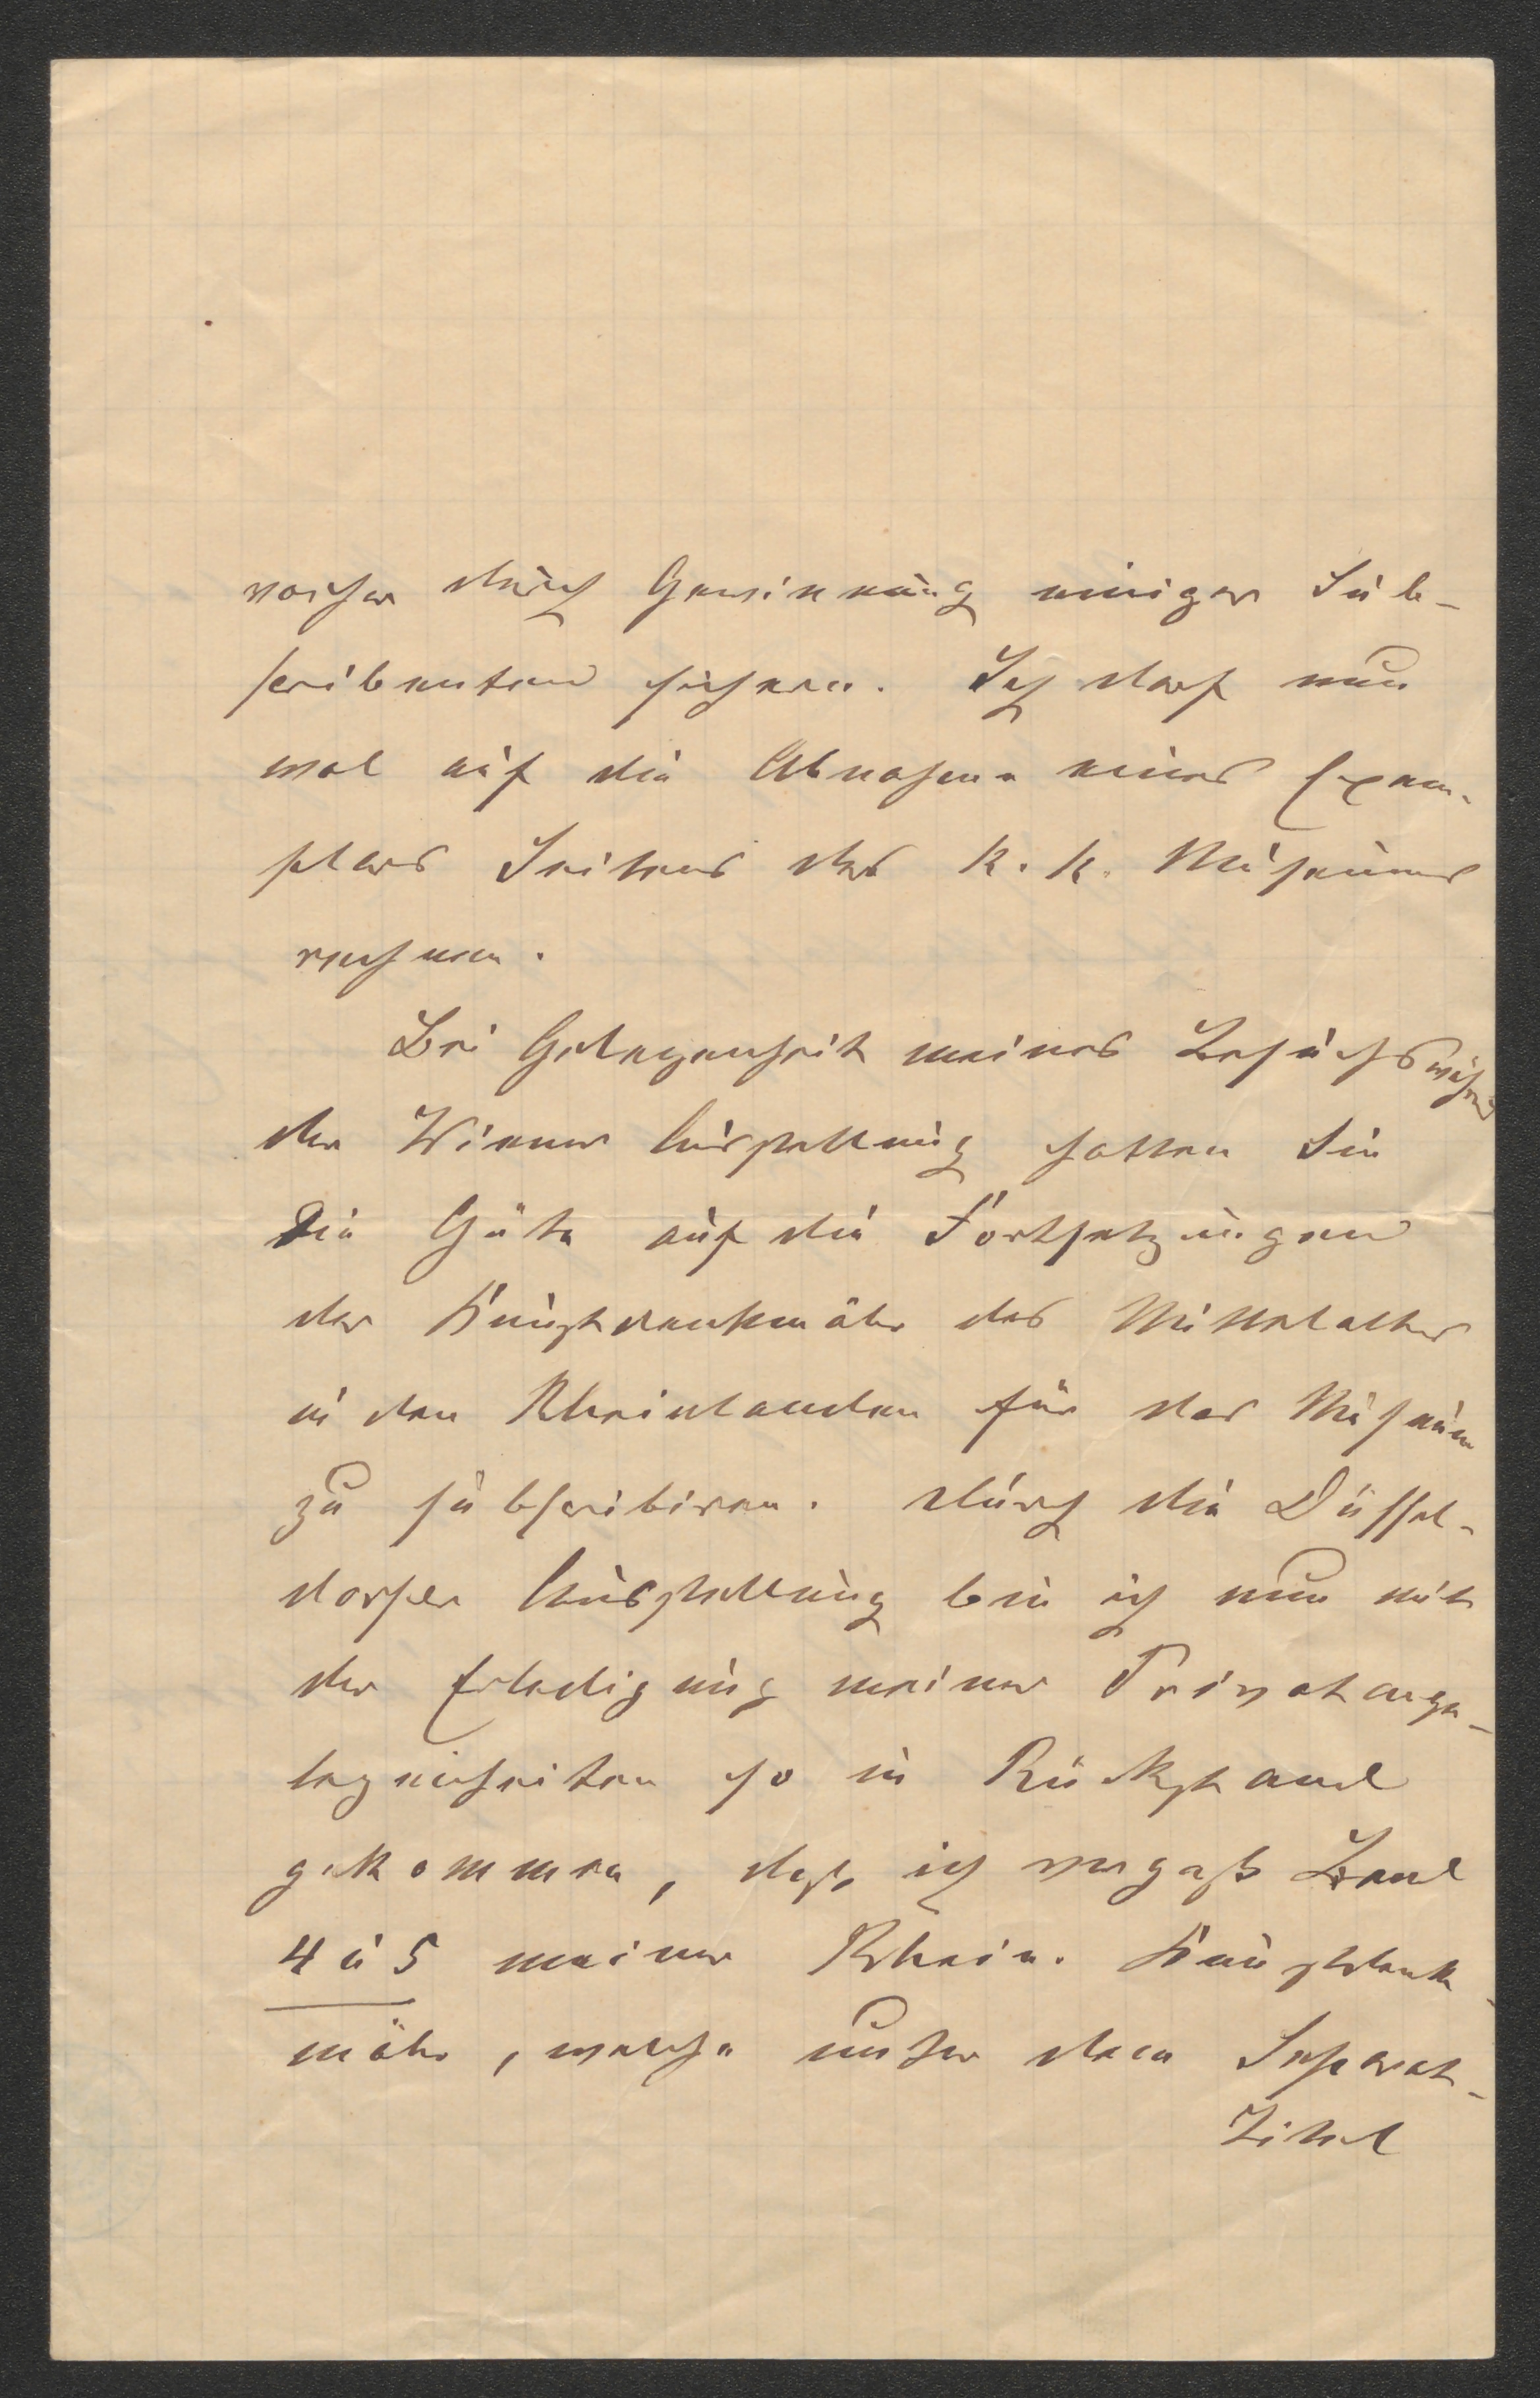 vorher durch Gewinnung einiger Sub-
scribenten sichern. Ich darf nun
wol auf die Abnahme eines Exem-
plars Seitens des K. K. Museums
rechnen.
Bei Gelegenheit meines Besuchs während
der Wiener Ausstellung hatten Sie
die Güte auf die Fortsetzungen
der Kunstdenkmäler des Mittelalters
in den Rheinlanden für das Museum
zu subscribiren. Durch die Düssel-
dorfer Ausstellung bin ich nun mit
der Erledigung meiner Privatange-
legenheiten so in Rückstand
gekommen, daß ich vergaß Band
4 u 5 meiner Rhein. Kunstdenk-
mäler, welche unter dem Separat-
Titel